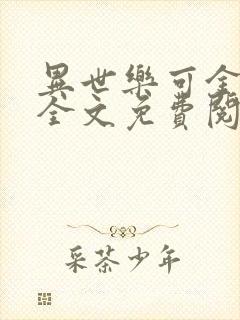 異世樂可全
全文免費閱
采茶少年